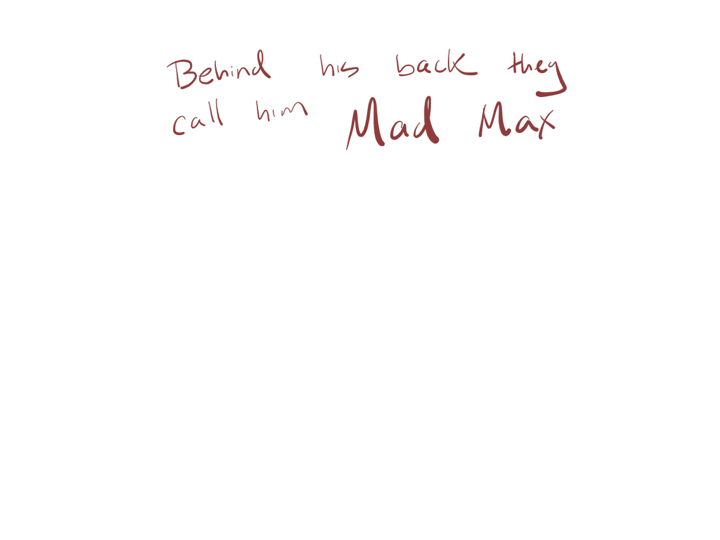 Behind his back they
call him Mad Max